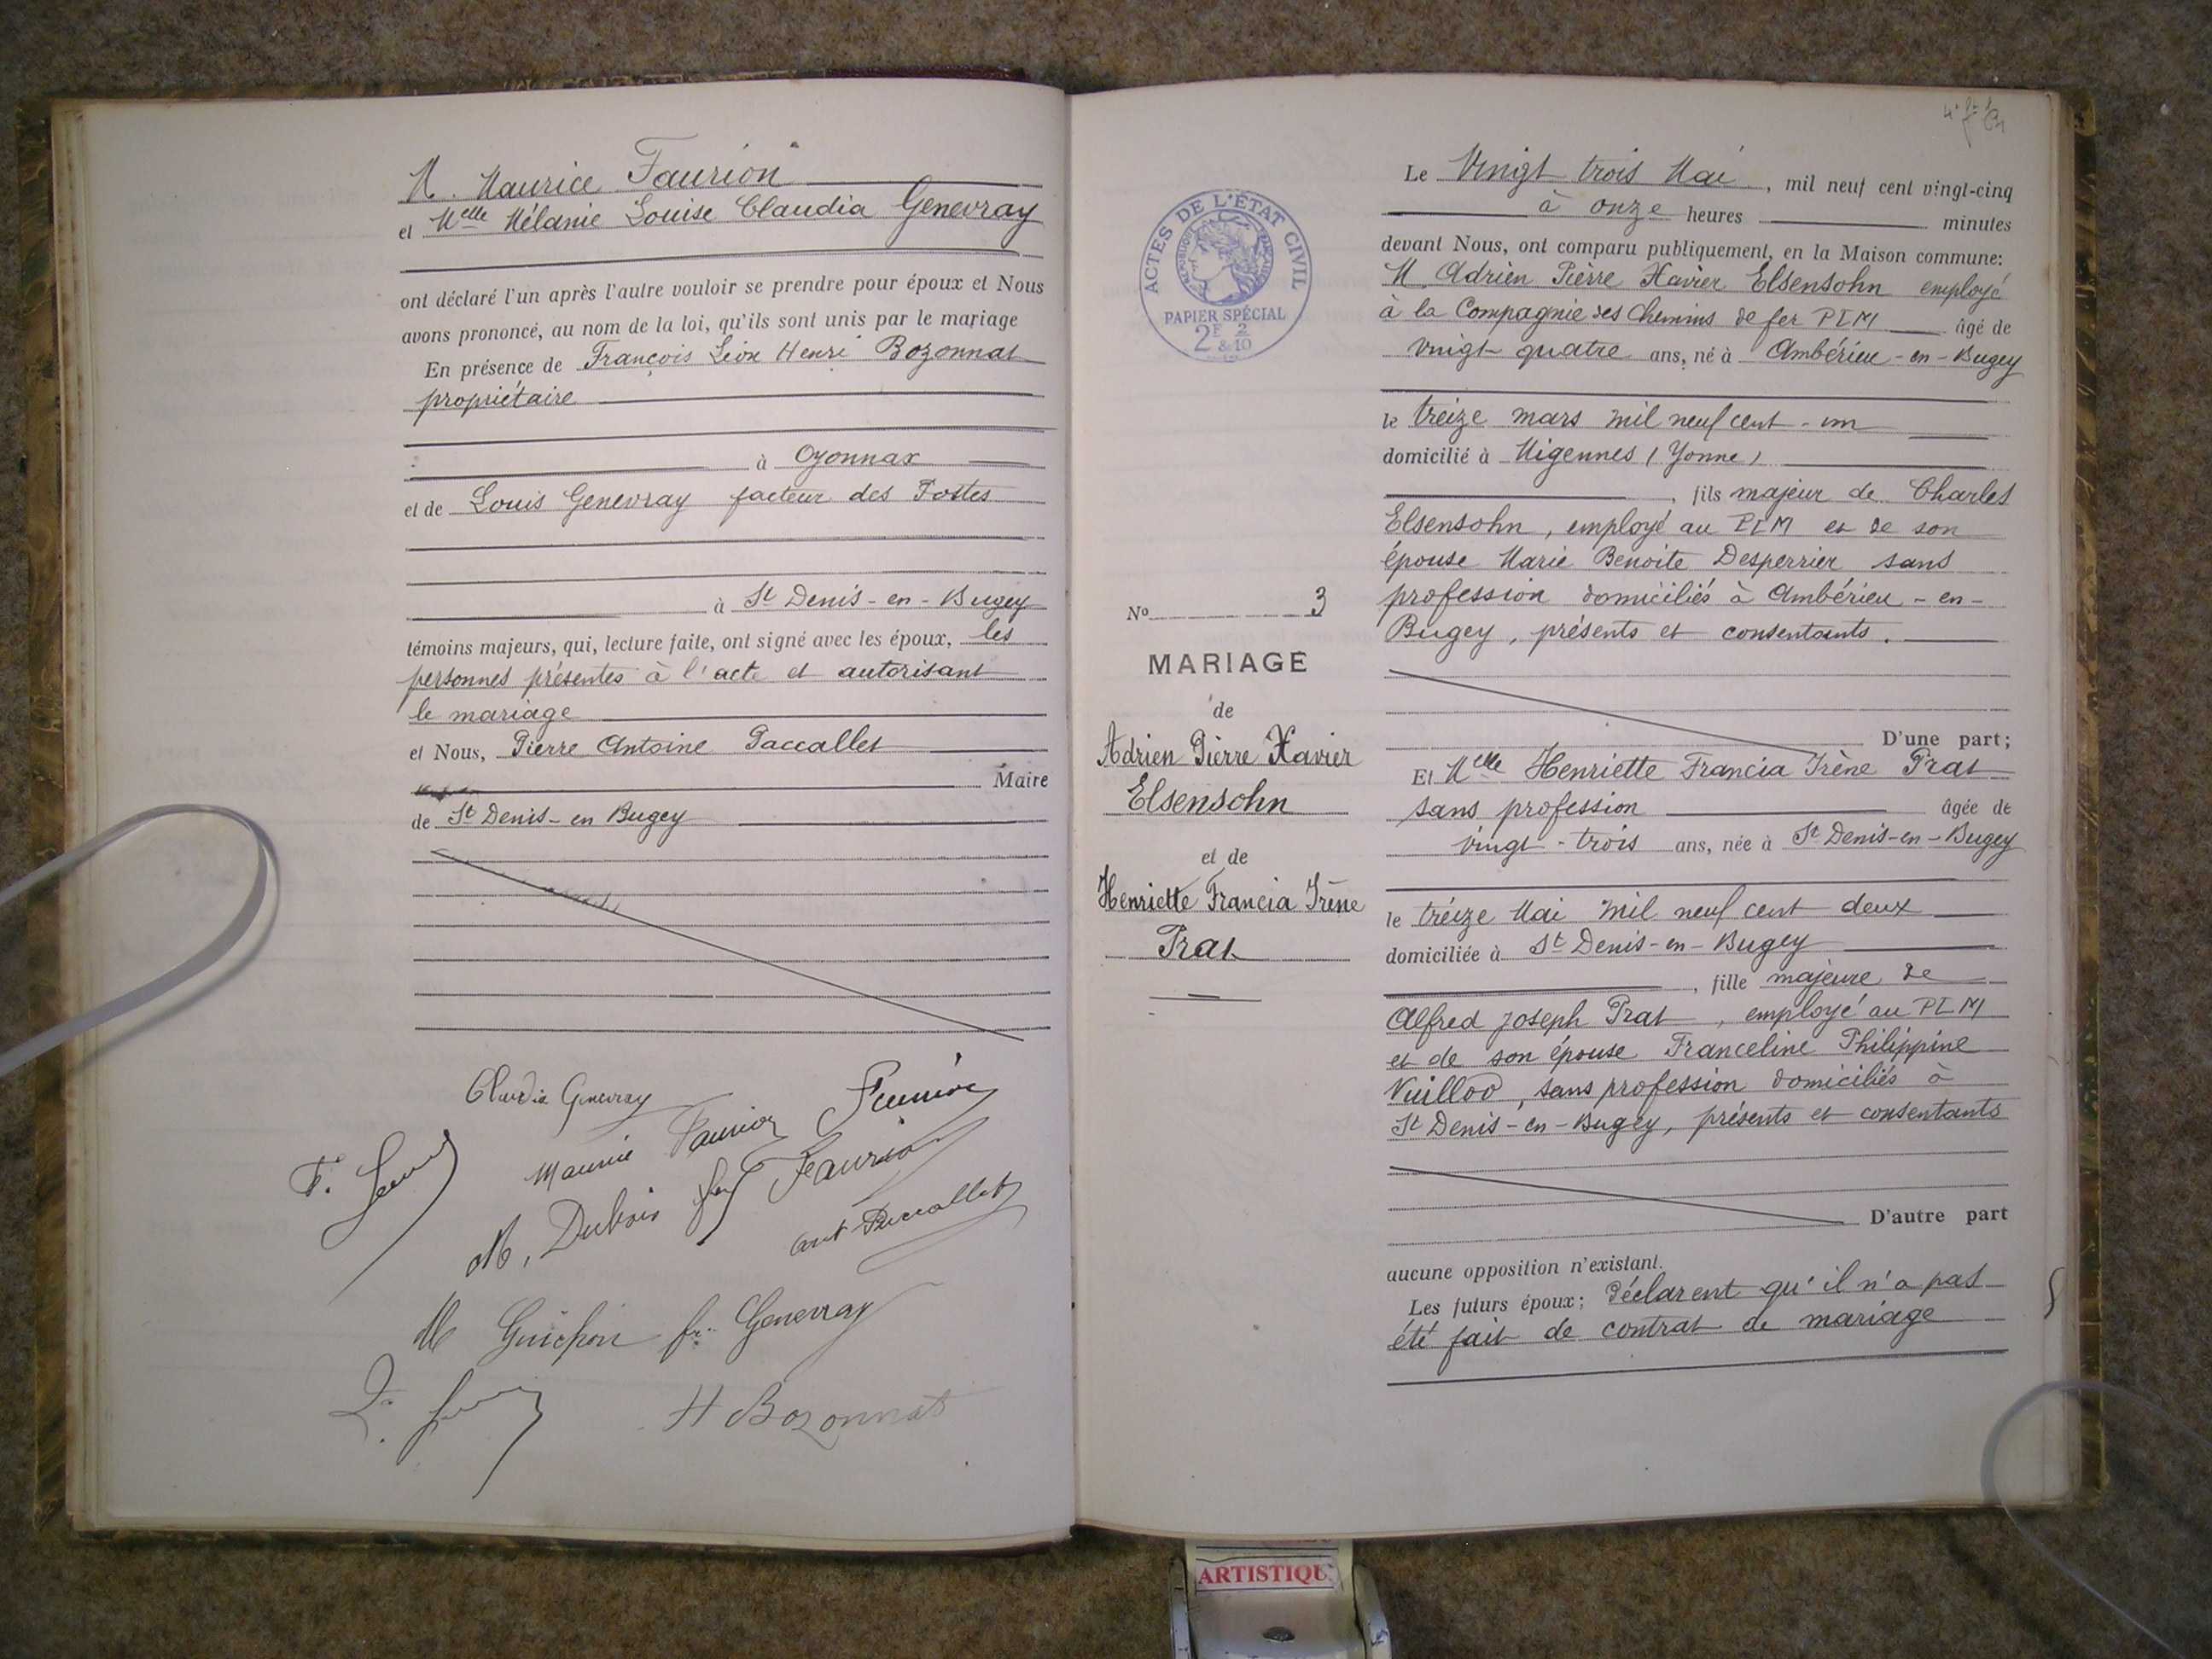 M. Maurice Faurion
et Melle Mélanie Louise Claudia Genevray
ont déclaré l'un après l'autre vouloir se prendre pour époux et Nous
avons prononcé, au nom de la loi, qu'ils sont unis par le mariage
En présence de François Léon Henri Bozonnat
propriétaire
à Oyonnax
et de Louis Genevray facteur des Postes
à St Denis-en-Bugey
témoins majeurs, qui, lecture faite, ont signé avec les époux, les
personnes présentes à l'acte et autorisant
le mariage
et Nous, Pierre Antoine Paccallet
Maire
de St Denis-en Bugey
Claudia Genevray
Maurice Faurion Faurion
F.
M. Dubois Faurion
ant Paccallet
M Guichon fe Genevray
H Bozonnat
ACTES DE L'ÉTAT CIVIL
RÉPUBLIQUE FRANÇAISE
PAPIER SPÉCIAL
2F 2
& 10
No 3
MARIAGE
de
Adrien Pierre Xavier
Elsensohn
et de
Henriette Francia Irène
Prat
Le Vingt trois Mai, mil neuf cent vingt-cinq
à onze heures minutes
devant Nous, ont comparu publiquement, en la Maison commune:
M. Adrien Pierre Xavier Elsensohn employé
à la Compagnie des Chemins de fer PLM âgé de
vingt-quatre ans, né à Ambérieu-en-Bugey
le treize mars mil neuf cent-un
domicilié à Migennes (Yonne)
, fils majeur de Charles
Elsensohn, employé au PLM et de son
épouse Marie Benoite Desperrier sans
profession domiciliés à Ambérieu-en-
Bugey, présents et consentants.
D'une part;
Et Melle Henriette Francia Irène Prat
sans profession âgée de
vingt-trois ans, née à St Denis-en-Bugey
le treize Mai mil neuf cent deux
domiciliée à St Denis-en-Bugey
, fille majeure de
Alfred Joseph Prat, employé au PLM
et de son épouse Franceline Philippine
Vuillod, sans profession domiciliés à
St Denis-en-Bugey, présents et consentants
D'autre part
aucune opposition n'existant.
Les futurs époux; déclarent qu'il n'a pas
été fait de contrat de mariage
ARTISTIQU